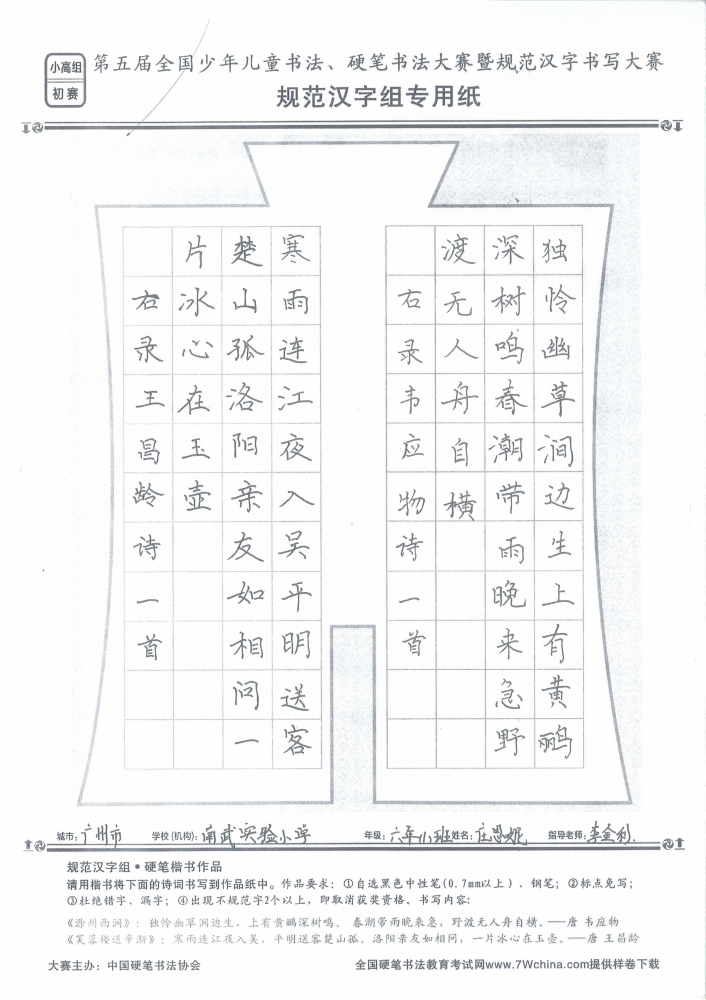 小高组
初赛
第五届全国少年儿童书法、硬笔书法大赛暨规范汉字书写大赛
规范汉字组专用纸
独怜幽草涧边生上有黄鹂
深树鸣春潮带雨晚来急野
渡无人舟自横
右录韦应物诗一首
寒雨连江夜入吴平明送客
楚山孤洛阳亲友如相问一
片冰心在玉壶
右录王昌龄诗一首
城市：广州市 学校(机构)：南武实验小学 年级：六年 班 姓名：庄思妮 指导老师：李金利
规范汉字组•硬笔楷书作品
请用楷书将下面的诗词书写到作品纸中。作品要求：①自选黑色中性笔(0.7mm以上)、钢笔；②标点免写；
③杜绝错字、漏字；④出现不规范字2个以上，即取消获奖资格。书写内容：
《滁州西涧》：独怜幽草涧边生，上有黄鹂深树鸣。 春潮带雨晚来急，野渡无人舟自横。——唐 韦应物
《芙蓉楼送辛渐》：寒雨连江夜入吴，平明送客楚山孤。洛阳亲友如相问，一片冰心在玉壶。——唐 王昌龄
大赛主办：中国硬笔书法协会 全国硬笔书法教育考试网www.7Wchina.com提供样卷下载